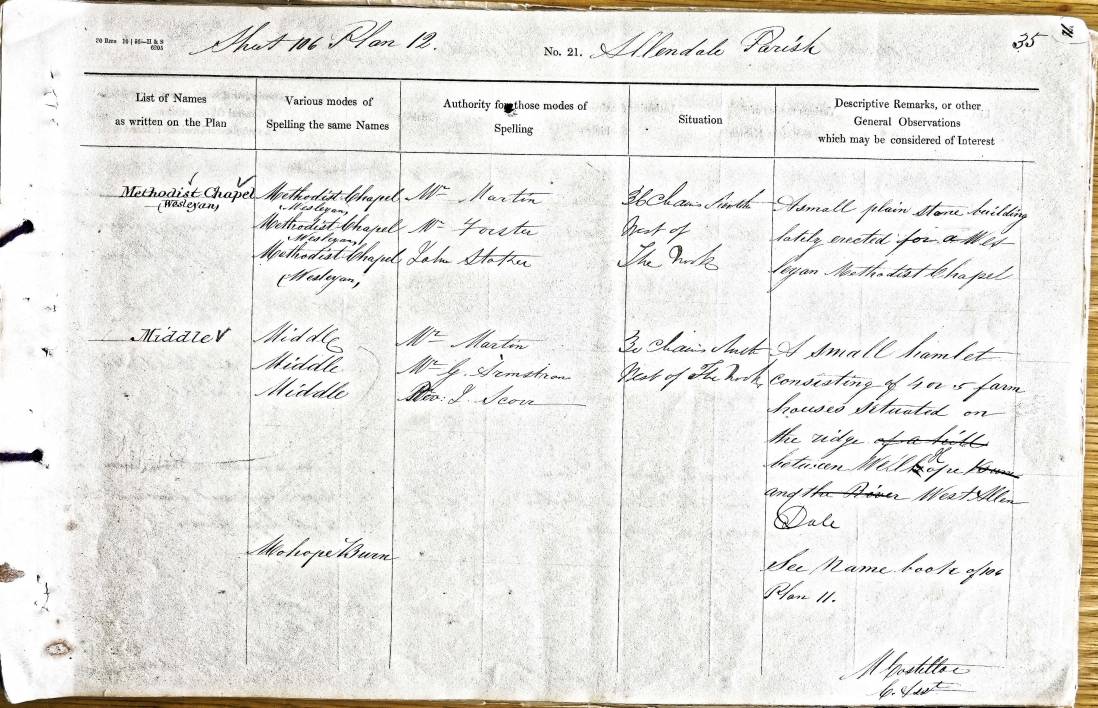 20 Bms 10 | 56—H & S
6205
Sheet 106 Plan 12.
No. 21. Allendale Parish
35
List of Names
as written on the Plan
Various modes of
Spelling the same Names
Authority for those modes of
Spelling
Situation
Descriptive Remarks, or other
General Observations
which may be considered of Interest
Methodist Chapel
(Wesleyan)
Methodist Chapel
Wesleyan
Methodist Chapel
Wesleyan
Methodist Chapel
(Wesleyan)
Mr Martin
Mr Forster
John Stather
36 Chains North
West of
The Nook
A small plain stone building
lately erected for a Wes
leyan Methodist Chapel
Middle
Middle
Middle
Middle
Mr Martin
Mr G. Armstron
Rev: J. Scou
30 Chains North
West of The Nook
A small hamlet
consisting of 4 or 5 farm
houses situated on
the ridge of a hill
between Wellhope Burn
and the River West Allen
Dale
Mohope Burn
See Name book of 106
Plan 11.
M Costelloe
C. Asst